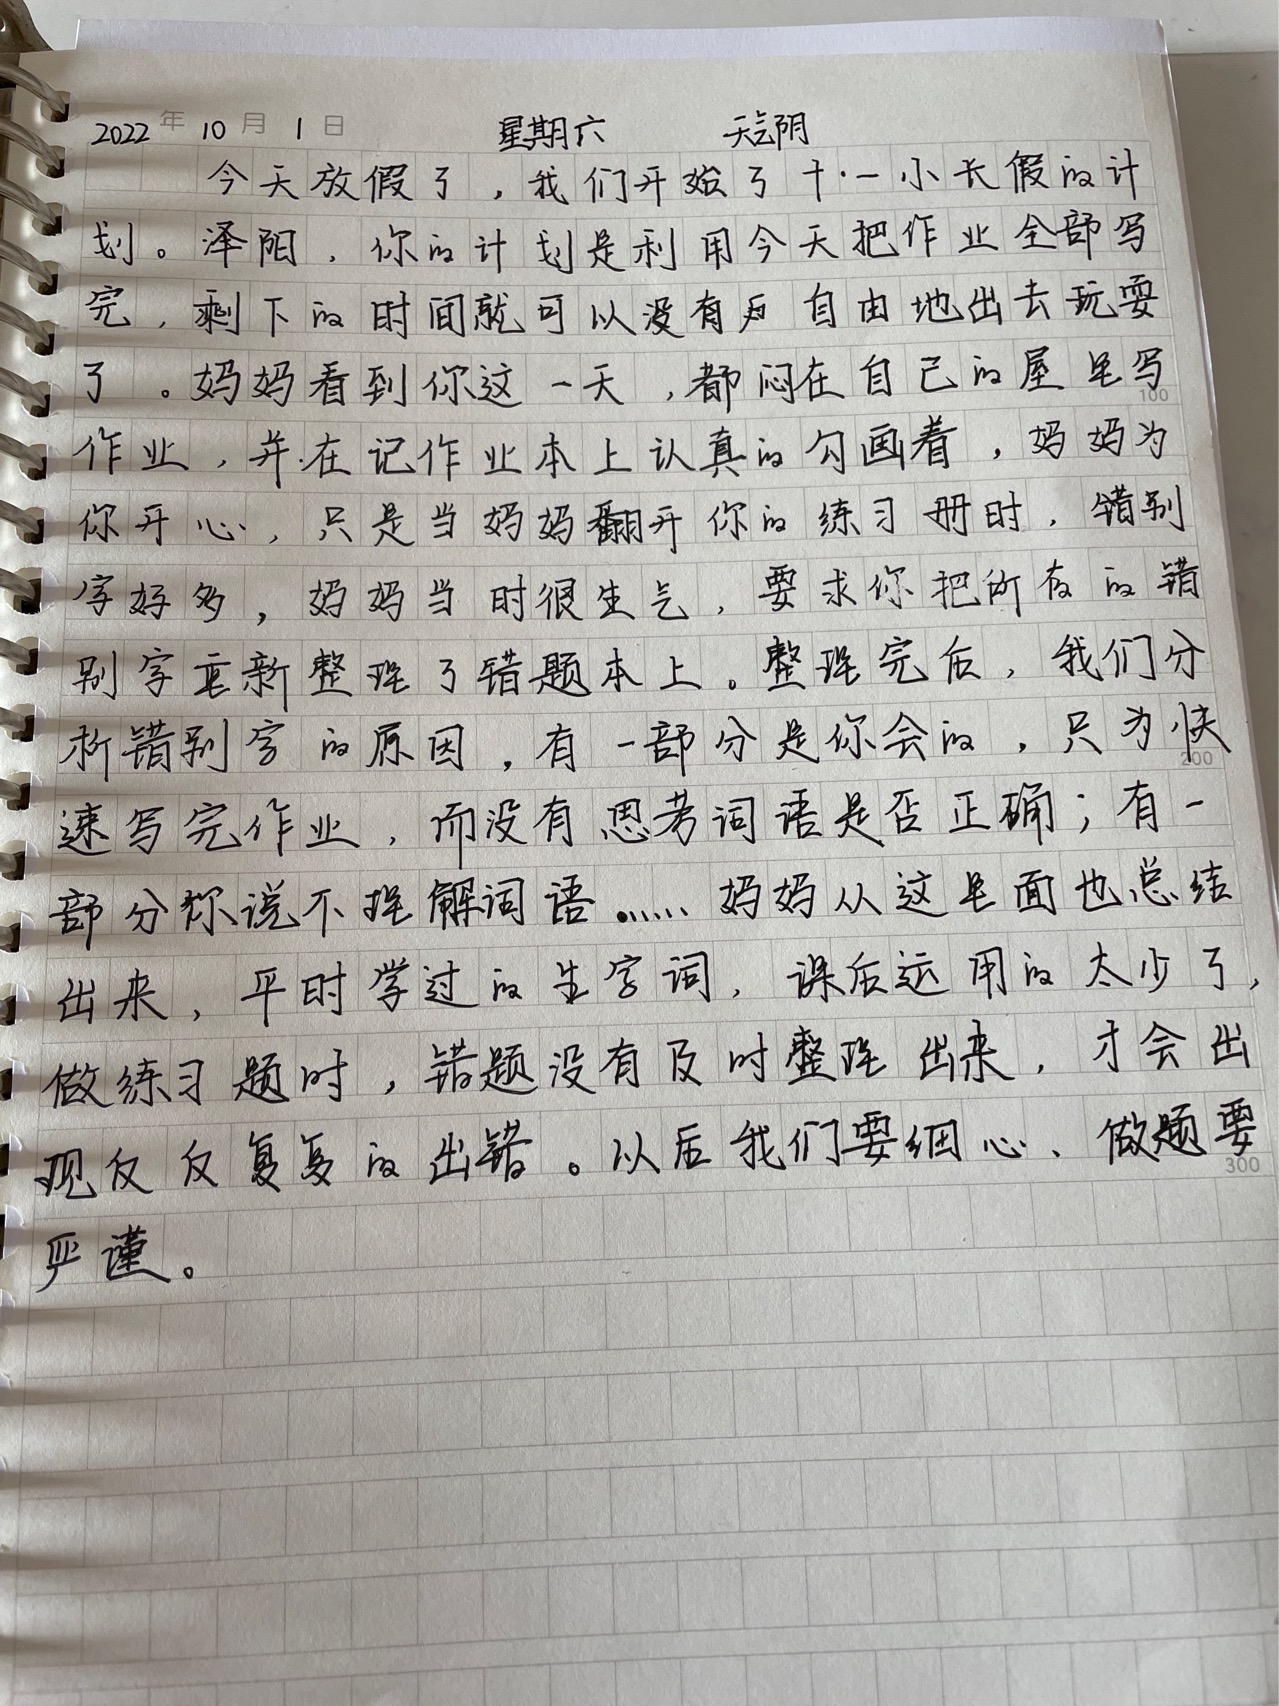 2022年10月1日 星期六 天气阴
今天放假了，我们开始了十·一小长假的计
划。泽阳，你的计划是利用今天把作业全部写
完，剩下的时间就可以没有 自由地出去玩耍
了。妈妈看到你这一天，都闷在自己的屋里写
100
作业，并在记作业本上认真的勾画着，妈妈为
你开心，只是当妈妈翻开你的练习册时，错别
字好多，妈妈当时很生气，要求你把所有的错
别字重新整理了错题本上。整理完后，我们分
析错别字的原因，有一部分是你会的，只为快
200
速写完作业，而没有思考词语是否正确；有一
部分你说不理解词语……妈妈从这里面也总结
出来，平时学过的生字词，课后运用的太少了，
做练习题时，错题没有及时整理出来，才会出
现反反复复的出错。以后我们要细心、做题要
300
严谨。